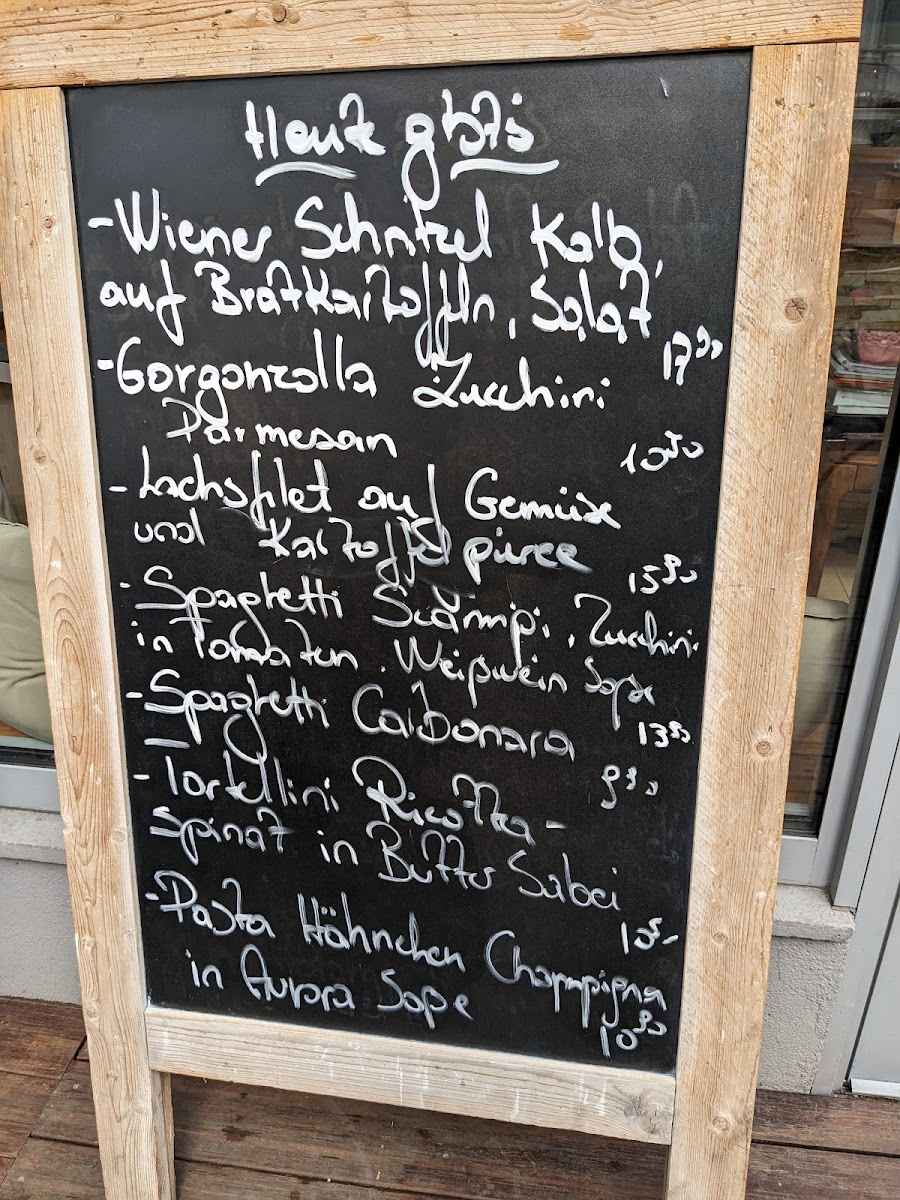 Heute gibts
- Wiener Schnitzel Kalb,
auf Bratkartoffeln, Salat
17⁹⁰
- Gorgonzolla Zucchini
Parmesan
10⁵⁰
- Lachsfilet auf Gemüse
und Kartoffelpüree
15⁹⁰
- Spaghetti Scampi, Zucchini
in Tomaten, Weißwein Soße
13⁹⁰
- Spaghetti Carbonara
9⁹⁰
- Tortellini Ricotta-
Spinat in Butter Salbei
- Pasta Hähnchen Champigna
in Aurora Soße
10⁹⁰